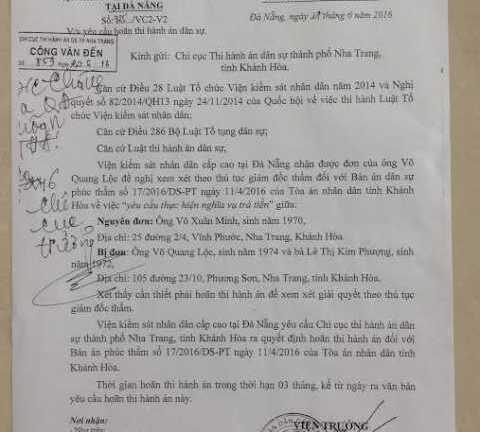 TẠI ĐÀ NẴNG
/VC2-V2
V/v yêu cầu hoãn thi hành án dân sự.
Đà Nẵng, ngày tháng 6 năm 2016
CHI CỤC THI HÀNH ÁN DS TP NHA TRANG
CÔNG VĂN ĐẾN
Số 853
Kính gửi: Chi cục Thi hành án dân sự thành phố Nha Trang,
tỉnh Khánh Hòa.
Căn cứ Điều 28 Luật Tổ chức Viện kiểm sát nhân dân năm 2014 và Nghị
quyết số 82/2014/QH13 ngày 24/11/2014 của Quốc hội về việc thi hành Luật Tổ
chức Viện kiểm sát nhân dân;
Căn cứ Điều 286 Bộ Luật Tố tụng dân sự;
Căn cứ Luật thi hành án dân sự;
Viện kiểm sát nhân dân cấp cao tại Đà Nẵng nhận được đơn của ông Võ
Quang Lộc đề nghị xem xét theo thủ tục giám đốc thẩm đối với Bản án dân sự
phúc thẩm số 17/2016/DS-PT ngày 11/4/2016 của Tòa án nhân dân tỉnh Khánh
Hòa về việc “yêu cầu thực hiện nghĩa vụ trả tiền” giữa:
Nguyên đơn: Ông Võ Xuân Minh, sinh năm 1970,
Địa chỉ: 25 đường 2/4, Vĩnh Phước, Nha Trang, Khánh Hòa.
Bị đơn: Ông Võ Quang Lộc, sinh năm 1974 và bà Lê Thị Kim Phượng, sinh
năm 1972,
Địa chỉ: 105 đường 23/10, Phương Sơn, Nha Trang, tỉnh Khánh Hòa.
Xét thấy cần thiết phải hoãn thi hành án để xem xét giải quyết theo thủ tục
giám đốc thẩm.
Viện kiểm sát nhân dân cấp cao tại Đà Nẵng yêu cầu Chi cục thi hành án dân
sự thành phố Nha Trang, tỉnh Khánh Hòa ra quyết định hoãn thi hành án đối với
Bản án phúc thẩm số 17/2016/DS-PT ngày 11/4/2016 của Tòa án nhân dân tỉnh
Khánh Hòa.
Thời gian hoãn thi hành án trong thời hạn 03 tháng, kể từ ngày ra văn bản
yêu cầu hoãn thi hành án này.
Nơi nhận:
- Như trên;
VIỆN TRƯỞNG